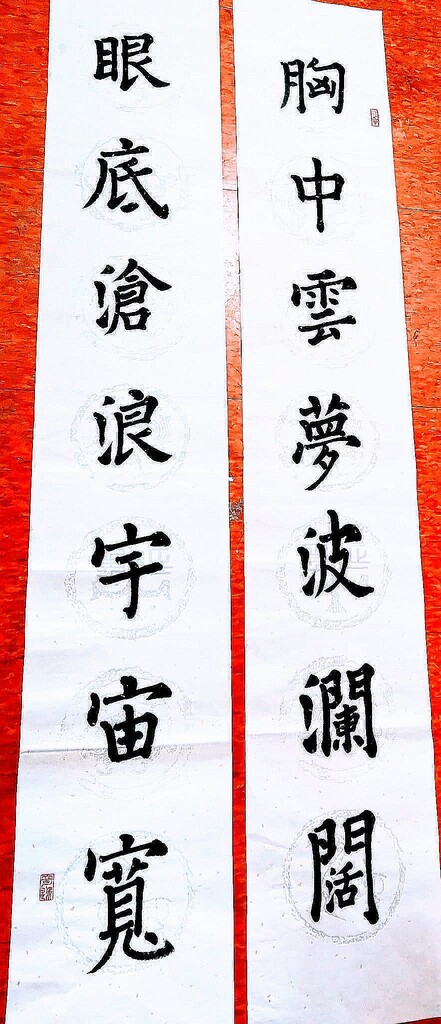 胸中雲夢波瀾闊
眼底滄浪宇宙寬